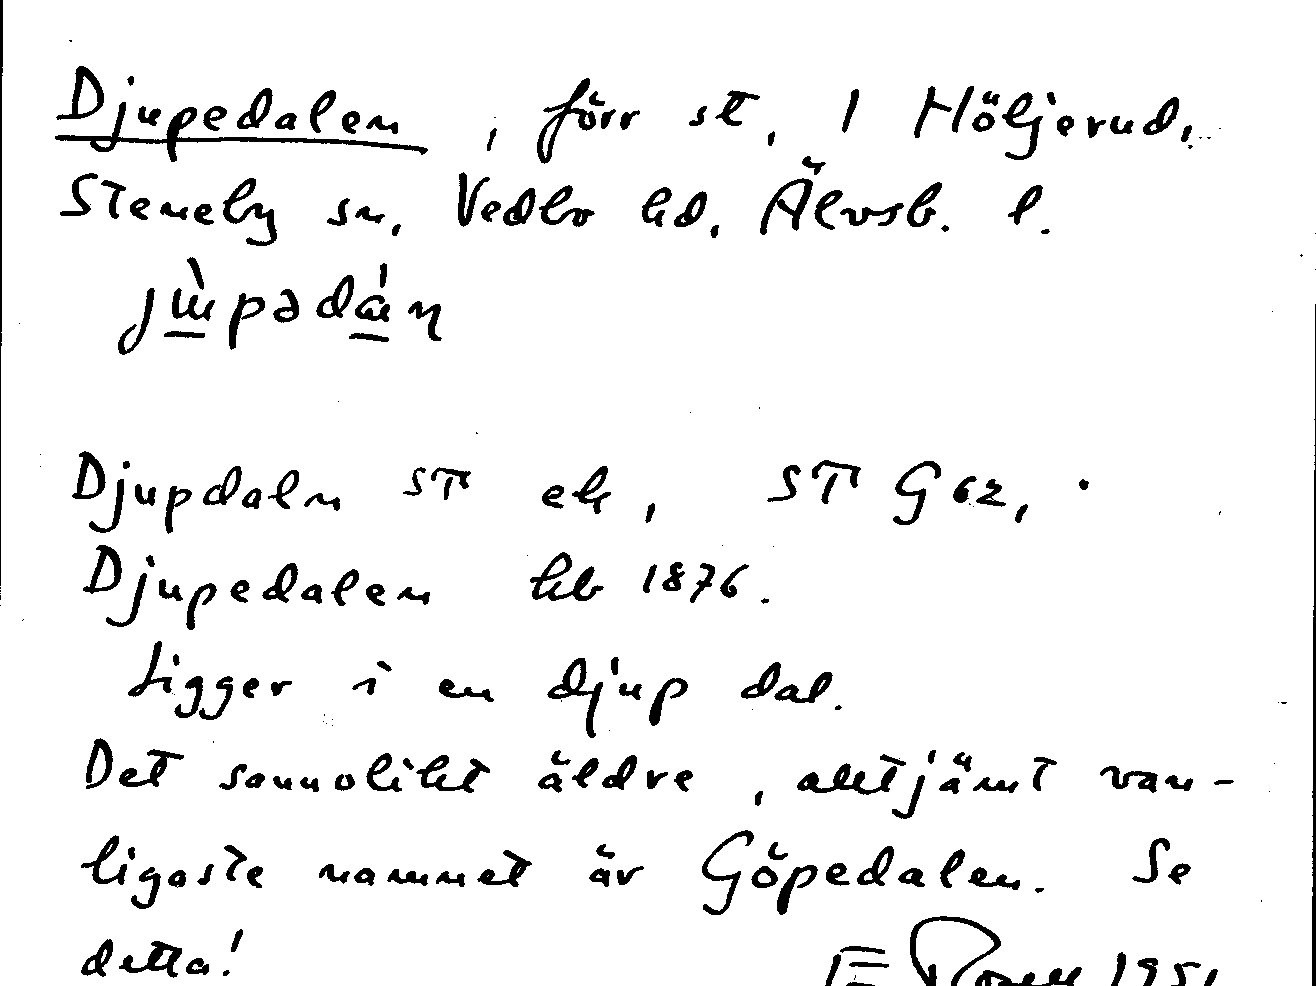 Djupedalen, förr st. 1 Höljerud,
Steneby sn, Vedbo hd. Älvsb. l.
jɯ̀pədán
Djupdaln ST ek, ST G62,
Djupedalen kb 1876.
Ligger i en djup dal.
Det sannolikt äldre, alltjämt van-
ligaste namnet är Göpedalen. Se
detta!
E Rosell 1951